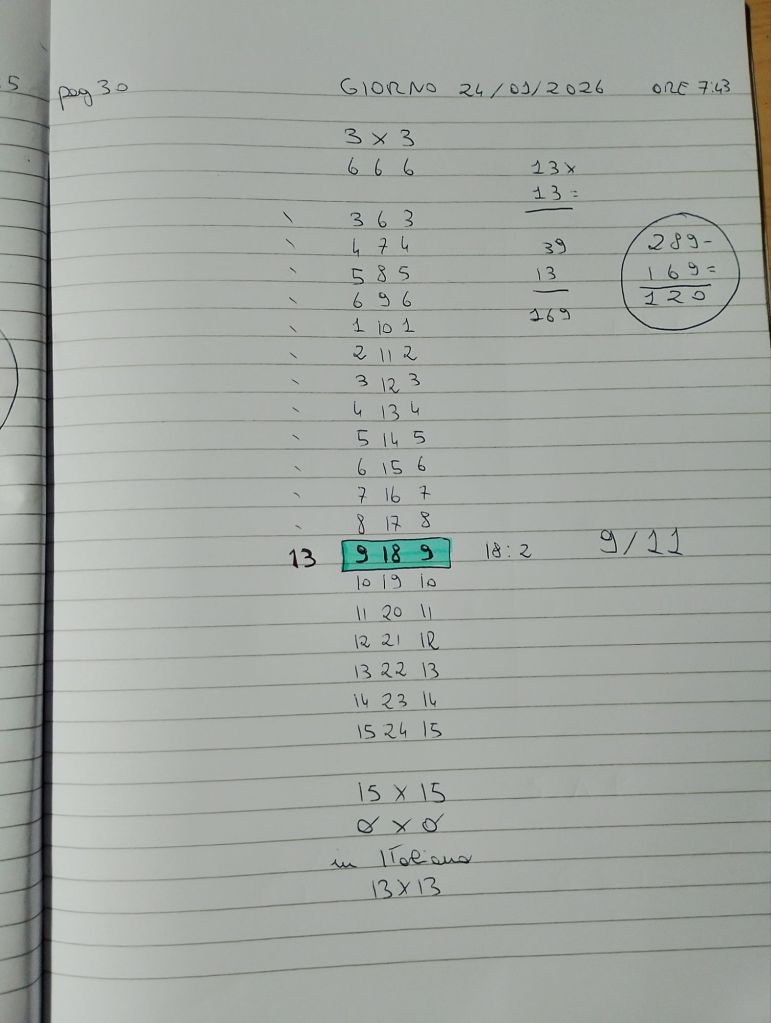 5
pag 30 GIORNO 24/01/2026 ORE 7:43
3 x 3
6 6 6
13 x
13 =
3 6 3
4 7 4
39
289 -
5 8 5
13
169 =
6 9 6
120
1 10 1
169
2 11 2
3 12 3
4 13 4
5 14 5
6 15 6
7 16 7
8 17 8
13 9 18 9 18 : 2 9/11
10 19 10
11 20 11
12 21 12
13 22 13
14 23 14
15 24 15
15 x 15
in ITALiano
13 x 13